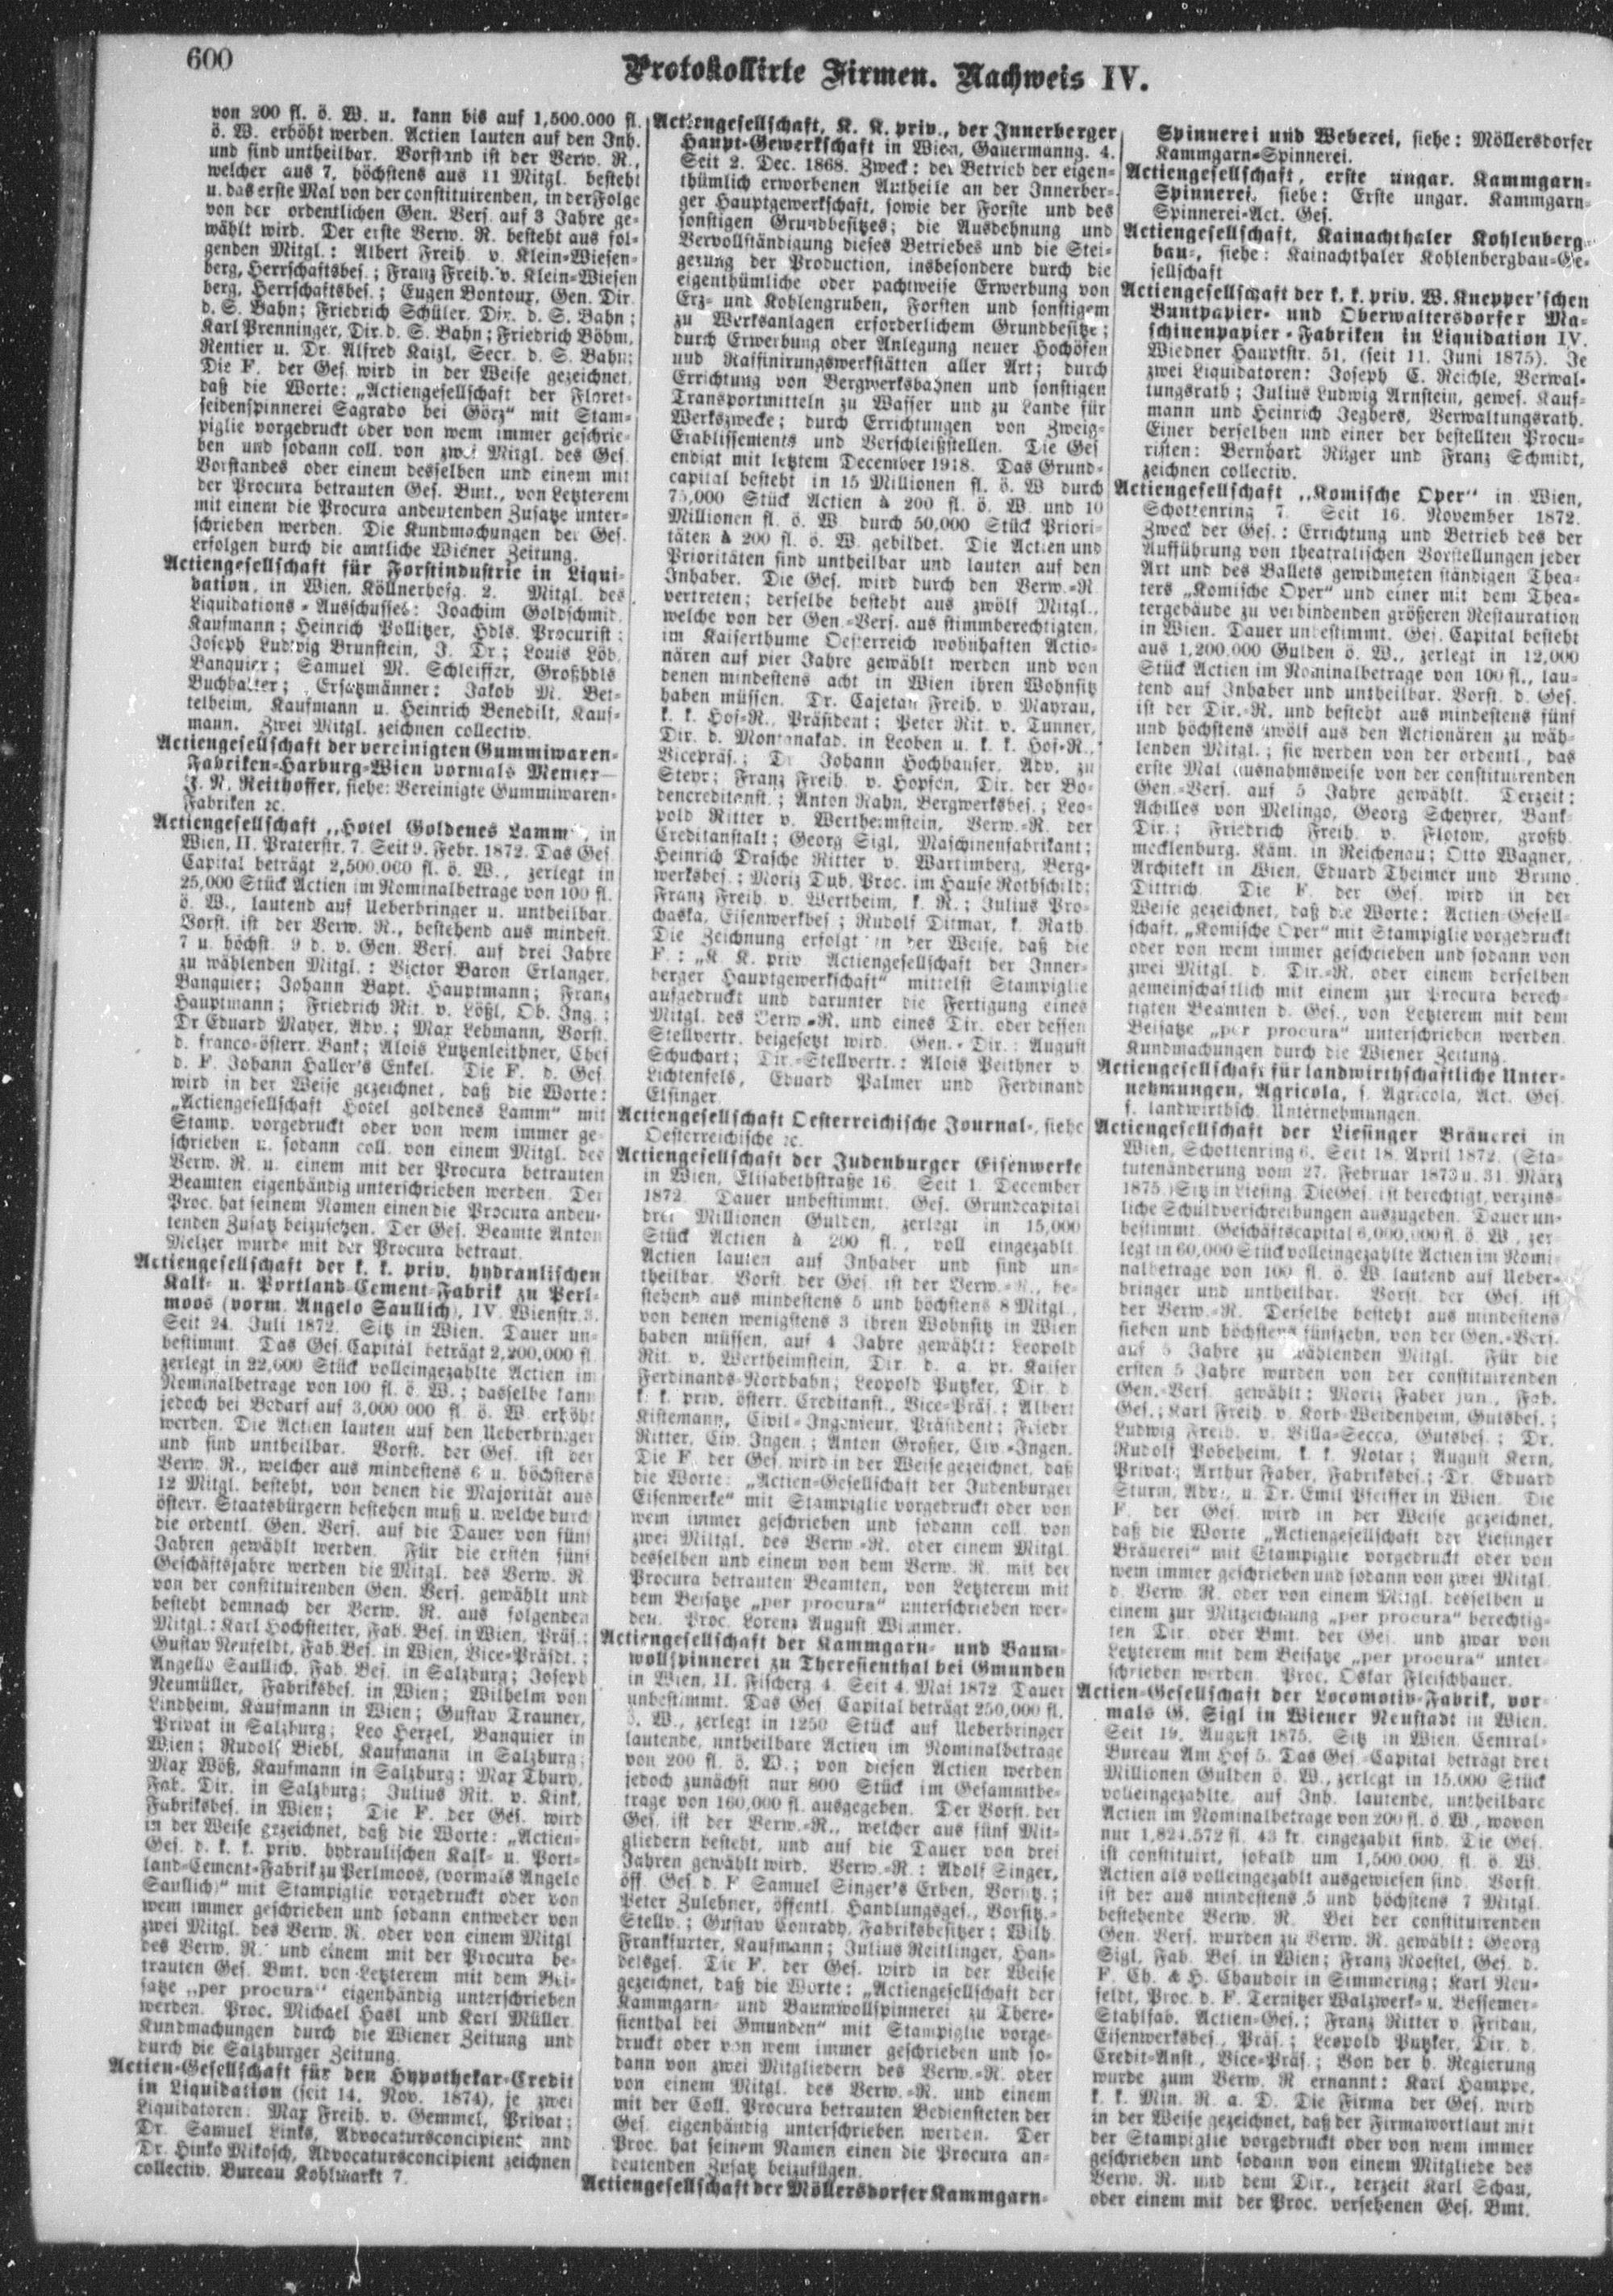 600
Protokollirte Firmen. Nachweis IV.
von 200 fl. ö. W. u. kann bis auf 1,500.000 fl.
ö. W. erhöht werden. Actien lauten auf den Inh.
und sind untheilbar. Vorstand ist der Verw. R.,
welcher aus 7, höchstens aus 11 Mitgl. besteht
u. das erste Mal von der constituirenden, in der Folge
von der ordentlichen Gen. Vers. auf 3 Jahre ge-
wählt wird. Der erste Verw. R. besteht aus fol-
genden Mitgl.: Albert Freih. v. Klein-Wiesen-
berg, Herrschaftsbes.; Franz Freih. v. Klein-Wiesen
berg, Herrschaftsbes.; Eugen Bontoux, Gen. Dir.
d. S. Bahn; Friedrich Schüler, Dir. d. S. Bahn;
Karl Prenninger, Dir. d. S. Bahn; Friedrich Böhm,
Rentier u. Dr. Alfred Kaizl, Secr. d. S. Bahn;
Die F. der Ges. wird in der Weise gezeichnet,
daß die Worte: „Actiengesellschaft der Floret-
seidenspinnerei Sagrado bei Görz“ mit Stam-
piglie vorgedruckt oder von wem immer geschrie-
ben und sodann coll. von zwei Mitgl. des Ges.
Vorstandes oder einem desselben und einem mit
der Procura betrauten Ges. Bmt., von Letzterem
mit einem die Procura andeutenden Zusatze unter-
schrieben werden. Die Kundmachungen der Ges.
erfolgen durch die amtliche Wiener Zeitung.
Actiengesellschaft für Forstindustrie in Liqui-
dation, in Wien, Köllnerhofg. 2. Mitgl. des
Liquidations-Ausschusses: Joachim Goldschmid,
Kaufmann; Heinrich Pollitzer, Hdls. Procurist;
Joseph Ludwig Brunstein, J. Dr.; Louis Löb,
Banquier; Samuel M. Schleiffer, Großhdls
Buchhalter; Ersatzmänner: Jakob M. Bet-
telheim, Kaufmann u. Heinrich Benedikt, Kauf-
mann. Zwei Mitgl. zeichnen collectiv.
Actiengesellschaft der vereinigten Gummiwaren-
Fabriken-Harburg-Wien vormals Menier—
J. N. Reithoffer, siehe: Vereinigte Gummiwaren-
Fabriken ꝛc.
Actiengesellschaft „Hotel Goldenes Lamm“, in
Wien, II. Praterstr. 7. Seit 9. Febr. 1872. Das Ges.
Capital beträgt 2,500.000 fl. ö. W., zerlegt in
25,000 Stück Actien im Nominalbetrage von 100 fl.
ö. W., lautend auf Ueberbringer u. untheilbar.
Vorst. ist der Verw. R., bestehend aus mindest.
7 u. höchst. 9 d. v. Gen. Vers. auf drei Jahre
zu wählenden Mitgl.: Victor Baron Erlanger,
Banquier; Johann Bapt. Hauptmann; Franz
Hauptmann; Friedrich Rit. v. Lößl, Ob. Ing.;
Dr Eduard Mayer, Adv.; Max Lehmann, Vorst.
d. franco-österr. Bank; Alois Lutzenleithner, Chef
d. F. Johann Haller's Enkel. Die F. d. Ges.
wird in der Weise gezeichnet, daß die Worte:
„Actiengesellschaft Hotel goldenes Lamm“ mit
Stamp. vorgedruckt oder von wem immer ge-
schrieben u. sodann coll. von einem Mitgl. des
Verw. R. u. einem mit der Procura betrauten
Beamten eigenhändig unterschrieben werden. Der
Proc. hat seinem Namen einen die Procura andeu-
tenden Zusatz beizusetzen. Der Ges. Beamte Anton
Melzer wurde mit der Procura betraut.
Actiengesellschaft der k. k. priv. hydraulischen
Kalk- u. Portland-Cement-Fabrik zu Perl-
moos (vorm. Angelo Saullich), IV. Wienstr. 3.
Seit 24. Juli 1872. Sitz in Wien. Dauer un-
bestimmt. Das Ges. Capital beträgt 2,200,000 fl
zerlegt in 22,000 Stück volleingezahlte Actien im
Nominalbetrage von 100 fl. ö. W.; dasselbe kann
jedoch bei Bedarf auf 3,000 000 fl. ö. W. erhöht
werden. Die Actien lauten auf den Ueberbringer
und sind untheilbar. Vorst. der Ges. ist der
Verw. R., welcher aus mindestens 6 u. höchstens
12 Mitgl. besteht, von denen die Majorität aus
österr. Staatsbürgern bestehen muß u. welche durch
die ordentl. Gen. Vers. auf die Dauer von fünf
Jahren gewählt werden. Für die ersten fünf
Geschäftsjahre werden die Mitgl. des Verw. R
von der constituirenden Gen. Vers. gewählt und
besteht demnach der Verw. R. aus folgenden
Mitgl.: Karl Hochstetter, Fab. Bes. in Wien, Präs.;
Gustav Neufeldt, Fab. Bes. in Wien, Vice-Präsdt.;
Angello Saullich, Fab. Bes. in Salzburg; Joseph
Neumüller, Fabriksbes. in Wien; Wilhelm von
Lindheim, Kaufmann in Wien; Gustav Trauner,
Privat in Salzburg; Leo Herzel, Banquier in
Wien; Rudolf Biebl, Kaufmann in Salzburg;
Max Wöß, Kaufmann in Salzburg; Max Thury,
Fab. Dir. in Salzburg; Julius Rit. v. Kink,
Fabriksbes. in Wien; Die F. der Ges. wird
in der Weise gezeichnet, daß die Worte: „Actien-
Ges. d. k. k. priv. hydraulischen Kalk- u. Port-
land-Cement-Fabrik zu Perlmoos, (vormals Angelo
Saullich)“ mit Stampiglie vorgedruckt oder von
wem immer geschrieben und sodann entweder von
zwei Mitgl. des Verw. R. oder von einem Mitgl
des Verw. R. und einem mit der Procura be-
trauten Ges. Bmt. von Letzterem mit dem Bei-
satze „per procura“ eigenhändig unterschrieben
werden. Proc. Michael Hasl und Karl Müller.
Kundmachungen durch die Wiener Zeitung und
durch die Salzburger Zeitung.
Actien-Gesellschaft für den Hypothekar-Credit
in Liquidation (seit 14. Nov. 1874), je zwei
Liquidatoren: Max Freih. v. Gemmel, Privat;
Dr. Samuel Links, Advocatursconcipient und
Dr. Hinko Mikosch, Advocatursconcipient zeichnen
collectiv. Bureau Kohlmarkt 7.
Actiengesellschaft, K. K. priv., der Innerberger
Haupt-Gewerkschaft in Wien, Gauermanng. 4.
Seit 2. Dec. 1868. Zweck: der Betrieb der eigen-
thümlich erworbenen Antheile an der Innerber-
ger Hauptgewerkschaft, sowie der Forste und des
sonstigen Grundbesitzes; die Ausdehnung und
Vervollständigung dieses Betriebes und die Stei-
gerung der Production, insbesondere durch die
eigenthümliche oder pachtweise Erwerbung von
Erz- und Kohlengruben, Forsten und sonstigem
zu Werksanlagen erforderlichem Grundbesitze;
durch Erwerbung oder Anlegung neuer Hochöfen
und Raffinirungswerkstätten aller Art; durch
Errichtung von Bergwerksbahnen und sonstigen
Transportmitteln zu Wasser und zu Lande für
Werkszwecke; durch Errichtungen von Zweig-
Etablissements und Verschleißstellen. Die Ges
endigt mit letztem December 1918. Das Grund-
capital besteht in 15 Millionen fl. ö. W durch
75,000 Stück Actien à 200 fl. ö. W. und 10
Millionen fl. ö. W. durch 50,000 Stück Priori-
täten à 200 fl. ö. W. gebildet. Die Actien und
Prioritäten sind untheilbar und lauten auf den
Inhaber. Die Ges. wird durch den Verw.-R.
vertreten; derselbe besteht aus zwölf Mitgl.,
welche von der Gen.-Vers. aus stimmberechtigten,
im Kaiserthume Oesterreich wohnhaften Actio-
nären auf vier Jahre gewählt werden und von
denen mindestens acht in Wien ihren Wohnsitz
haben müssen. Dr. Cajetan Freih. v. Mayrau,
k. k. Hof-R., Präsident; Peter Rit. v. Tunner,
Dir. d. Montanakad. in Leoben u. k. k. Hof-R.,
Vicepräs.; Dr Johann Hochhauser, Adv. zu
Steyr; Franz Freih. v. Hopfen, Dir. der Bo-
dencreditanst.; Anton Rahn, Bergwerksbes.; Leo-
pold Ritter v. Wertheimstein, Verw.-R. der
Creditanstalt; Georg Sigl, Maschinenfabrikant;
Heinrich Drasche Ritter v. Wartimberg, Berg-
werksbes.; Moriz Dub, Proc. im Hause Rothschild;
Franz Freih. v. Wertheim, k. R.; Julius Pro-
chaska, Eisenwerkbes; Rudolf Ditmar, k. Rath.
Die Zeichnung erfolgt in der Weise, daß die
F.: „K. K. priv. Actiengesellschaft der Inner-
berger Hauptgewerkschaft“ mittelst Stampiglie
aufgedruckt und darunter die Fertigung eines
Mitgl. des Verw.-R. und eines Dir. oder dessen
Stellvertr. beigesetzt wird. Gen.-Dir.: August
Schuchart; Dir.-Stellvertr.: Alois Peithner v.
Lichtenfels, Eduard Palmer und Ferdinand
Elsinger.
Actiengesellschaft Oesterreichische Journal-, siehe
Oesterreichische ꝛc.
Actiengesellschaft der Judenburger Eisenwerke
in Wien, Elisabethstraße 16. Seit 1. December
1872. Dauer unbestimmt. Ges. Grundcapital
drei Millionen Gulden, zerlegt in 15,000
Stück Actien à 200 fl., voll eingezahlt.
Actien lauten auf Inhaber und sind un-
theilbar. Vorst. der Ges. ist der Verw.-R., be-
stehend aus mindestens 5 und höchstens 8 Mitgl.,
von denen wenigstens 3 ihren Wohnsitz in Wien
haben müssen, auf 4 Jahre gewählt: Leopold
Rit. v. Wertheimstein, Dir. d. a. pr. Kaiser
Ferdinands-Nordbahn; Leopold Putzker, Dir. d.
k. k. priv. österr. Creditanst., Vice-Präs.: Albert
Kistemann, Civil-Ingenieur, Präsident; Friedr.
Ritter, Civ. Ingen.; Anton Großer, Civ.-Ingen.
Die F. der Ges. wird in der Weise gezeichnet, daß
die Worte: „Actien-Gesellschaft der Judenburger
Eisenwerke“ mit Stampiglie vorgedruckt oder von
wem immer geschrieben und sodann coll. von
zwei Miltgl. des Verw.-R. oder einem Mitgl.
desselben und einem von dem Verw. R. mit der
Procura betrauten Beamten, von Letzterem mit
dem Beisatze „per procura“ unterschrieben wer-
den. Proc. Lorenz August Wimmer.
Actiengesellschaft der Kammgarn- und Baum-
wollspinnerei zu Theresienthal bei Gmunden
in Wien, II. Fischerg. 4. Seit 4. Mai 1872. Dauer
unbestimmt. Das Ges. Capital beträgt 250,000 fl.
ö. W., zerlegt in 1250 Stück auf Ueberbringer
lautende, untheilbare Actien im Nominalbetrage
von 200 fl. ö. W.; von diesen Actien werden
jedoch zunächst nur 800 Stück im Gesammtbe-
trage von 160,000 fl. ausgegeben. Der Vorst. der
Ges. ist der Verw.-R., welcher aus fünf Mit-
gliedern besteht, und auf die Dauer von drei
Jahren gewählt wird. Verw.-R.: Adolf Singer,
öff. Ges. d. F. Samuel Singer's Erben, Vorsitz.;
Peter Zulehner, öffentl. Handlungsges., Vorsitz.-
Stellv.; Gustav Conrady, Fabriksbesitzer; Wilh.
Frankfurter, Kaufmann; Julius Reitlinger, Han-
delsges. Die F. der Ges. wird in der Weise
gezeichnet, daß die Worte: „Actiengesellschaft der
Kammgarn- und Baumwollspinnerei zu There-
sienthal bei Gmunden“ mit Stampiglie vorge-
druckt oder von wem immer geschrieben und so-
dann von zwei Mitgliedern des Verw.-R. oder
von einem Mitgl. des Verw.-R. und einem
mit der Coll. Procura betrauten Bediensteten der
Ges. eigenhändig unterschrieben werden. Der
Proc. hat seinem Namen einen die Procura an-
deutenden Zusatz beizufügen.
Actiengesellschaft der Möllersdorfer Kammgarn-
Spinnerei und Weberei, siehe: Möllersdorfer
Kammgarn-Spinnerei.
Actiengesellschaft, erste ungar. Kammgarn-
Spinnerei, siehe: Erste ungar. Kammgarn-
Spinnerei-Act. Ges.
Actiengesellschaft, Kainachthaler Kohlenberg-
bau-, siehe: Kainachthaler Kohlenbergbau-Ge-
sellschaft
Actiengesellschaft der k. k. priv. W. Knepper'schen
Buntpapier- und Oberwaltersdorfer Ma-
schinenpapier-Fabriken in Liquidation IV.
Wiedner Hauptstr. 51, (seit 11. Juni 1875). Je
zwei Liquidatoren: Joseph C. Reichle, Verwal-
tungsrath; Julius Ludwig Arnstein, gewes. Kauf-
mann und Heinrich Jeghers, Verwaltungsrath.
Einer derselben und einer der bestellten Procu-
risten: Bernhart Rüger und Franz Schmidt,
zeichnen collectiv.
Actiengesellschaft „Komische Oper“ in Wien,
Schottenring 7. Seit 16. November 1872.
Zweck der Ges.: Errichtung und Betrieb des der
Aufführung von theatralischen Vorstellungen jeder
Art und des Ballets gewidmeten ständigen Thea-
ters „Komische Oper“ und einer mit dem Thea-
tergebäude zu verbindenden größeren Restauration
in Wien. Dauer unbestimmt. Ges. Capital besteht
aus 1,200.000 Gulden ö. W., zerlegt in 12,000
Stück Actien im Nominalbetrage von 100 fl., lau-
tend auf Inhaber und untheilbar. Vorst. d. Ges.
ist der Dir.-R. und besteht aus mindestens fünf
und höchstens zwölf aus den Actionären zu wäh-
lenden Mitgl.; sie werden von der ordentl., das
erste Mal ausnahmsweise von der constituirenden
Gen.-Vers. auf 5 Jahre gewählt. Derzeit:
Achilles von Melingo, Georg Scheyrer, Bank-
Dir.; Friedrich Freih. v. Flotow, großh.
mecklenburg. Käm. in Reichenau; Otto Wagner,
Architekt in Wien, Eduard Theimer und Bruno
Dittrich. Die F. der Ges. wird in der
Weise gezeichnet, daß die Worte: Actien-Gesell-
schaft, „Komische Oper“ mit Stampiglie vorgedruckt
oder von wem immer geschrieben und sodann von
zwei Mitgl. d. Dir.-R. oder einem derselben
gemeinschaftlich mit einem zur Procura berech-
tigten Beamten d. Ges., von Letzterem mit dem
Beisatze „per procura“ unterschrieben werden.
Kundmachungen durch die Wiener Zeitung.
Actiengesellschaft für landwirthschaftliche Unter-
nehmungen, Agricola, s. Agricola, Act. Ges.
f. landwirthsch. Unternehmungen.
Actiengesellschaft der Liesinger Bräuerei in
Wien, Schottenring 6. Seit 18. April 1872. (Sta-
tutenänderung vom 27. Februar 1873 u. 31. März
1875.) Sitz in Liesing. Die Ges. ist berechtigt, verzins-
liche Schuldverschreibungen auszugeben. Dauer un-
bestimmt. Geschäftscapital 6,000,000 fl. ö. W., zer-
legt in 60,000 Stück volleingezahlte Actien im Nomi-
nalbetrage von 100 fl. ö. W. lautend auf Ueber-
bringer und untheilbar. Vorst. der Ges. ist
der Verw.-R. Derselbe besteht aus mindestens
sieben und höchstens fünfzehn, von der Gen.-Vers.
auf 5 Jahre zu wählenden Mitgl. Für die
ersten 5 Jahre wurden von der constituirenden
Gen.-Vers. gewählt: Moriz Faber jun., Fab.
Ges.; Karl Freih. v. Korb-Weidenheim, Gutsbes.;
Ludwig Freih. v. Villa-Secca, Gutsbes.; Dr.
Rudolf Pobeheim, k. k. Notar; August Kern,
Privat; Arthur Faber, Fabriksbes.; Dr. Eduard
Sturm, Adv., u. Dr. Emil Pfeiffer in Wien. Die
F. der Ges. wird in der Weise gezeichnet,
daß die Worte „Actiengesellschaft der Liesinger
Bräuerei“ mit Stampiglie vorgedruckt oder von
wem immer geschrieben und sodann von zwei Mitgl.
d. Verw. R. oder von einem Mitgl. desselben u
einem zur Mitzeichnung „per procura“ berechtig-
ten Dir. oder Bmt. der Ges. und zwar von
Letzterem mit dem Beisatze „per procura“ unter-
schrieben werden. Proc. Oskar Fleischhauer.
Actien-Gesellschaft der Locomotiv-Fabrik, vor-
mals G. Sigl in Wiener Neustadt in Wien.
Seit 19. August 1875. Sitz in Wien. Central-
Bureau Am Hof 5. Das Ges.-Capital beträgt drei
Millionen Gulden ö. W., zerlegt in 15,000 Stück
volleingezahlte, auf Inh. lautende, untheilbare
Actien im Nominalbetrage von 200 fl. ö. W., wovon
nur 1,824.572 fl. 43 kr. eingezahlt sind. Die Ges.
ist constituirt, sobald um 1,500.000. fl. ö. W.
Actien als volleingezahlt ausgewiesen sind. Vorst.
ist der aus mindestens 5 und höchstens 7 Mitgl.
bestehende Verw. R. Bei der constituirenden
Gen. Vers. wurden zu Verw. R. gewählt: Georg
Sigl, Fab. Bes. in Wien; Franz Roestel, Ges. d.
F. Ch. & H. Chaudoir in Simmering; Karl Neu-
feldt, Proc. d. F. Ternitzer Walzwerk- u. Bessemer-
Stahlfab. Actien-Ges.; Franz Ritter v. Fridau,
Eisenwerksbes., Präs.; Leopold Putzker, Dir. d.
Credit-Anst., Vice-Präs.; Von der h. Regierung
wurde zum Verw. R ernannt: Karl Hamppe,
k. k. Min. R. a. D. Die Firma der Ges. wird
in der Weise gezeichnet, daß der Firmawortlaut mit
der Stampiglie vorgedruckt oder von wem immer
geschrieben und sodann von einem Mitgliede des
Verw. R. und dem Dir., derzeit Karl Schau,
oder einem mit der Proc. versehenen Ges. Bmt.